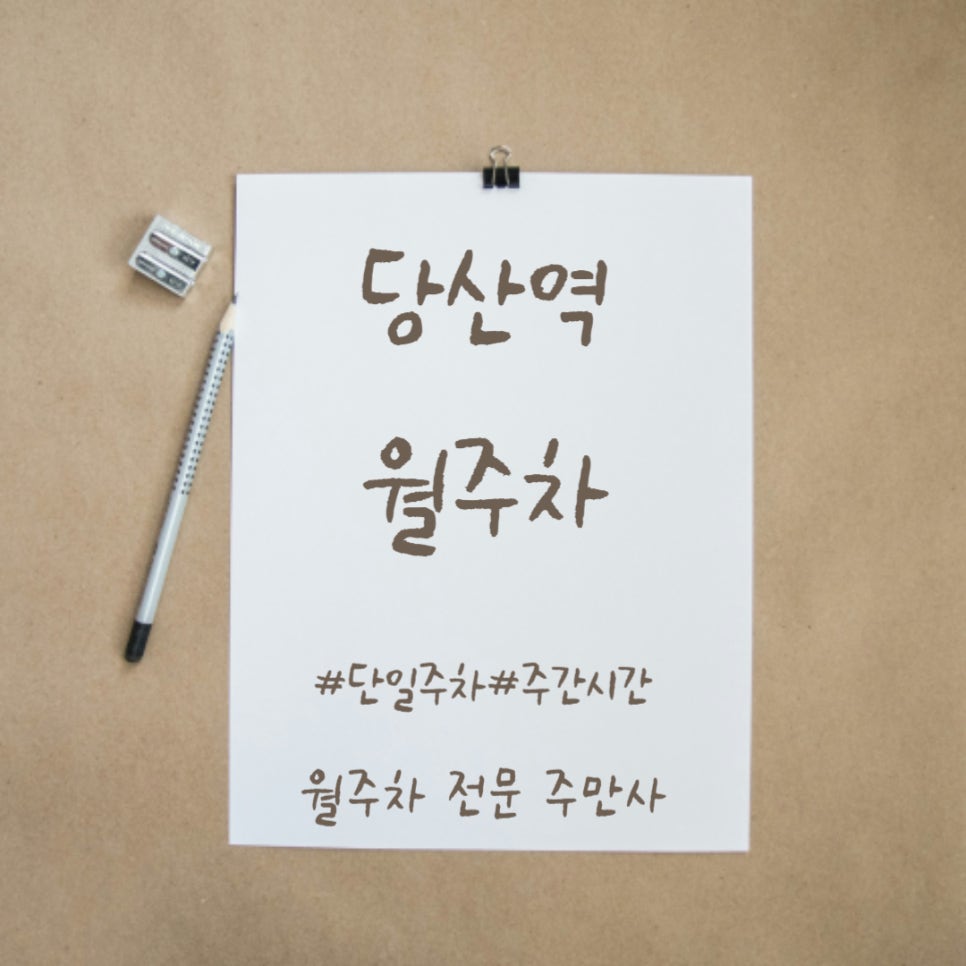 당산역
월주차
#단일주차#주간시간
월주차 전문 주만사